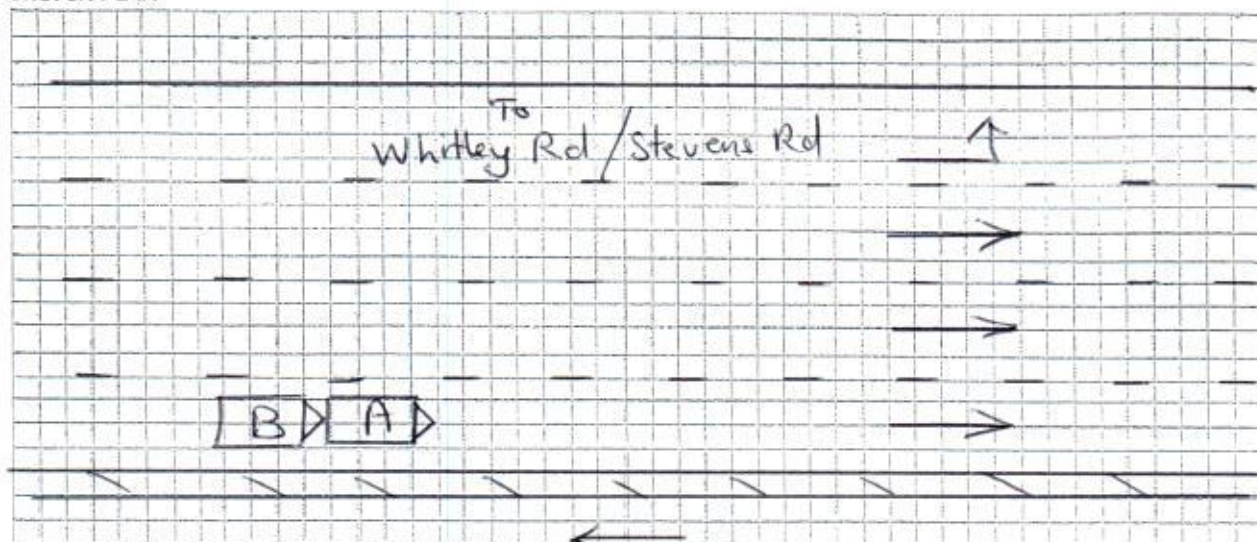 To
Whitley Rd/Stevens Rd
B A